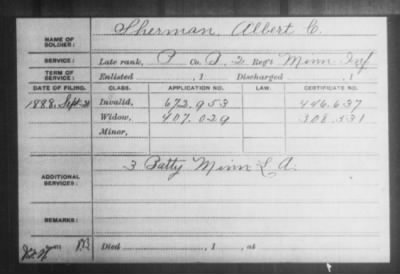 NAME OF SOLDIER: Sherman, Albert C.
SERVICE: Late rank, P Co. B, 2 Reg't Minn Inf
TERM OF SERVICE: Enlisted , 1 Discharged , 1
DATE OF FILING. CLASS. APPLICATION NO. LAW. CERTIFICATE NO.
1888, Sept. 21 Invalid, 672.953 446.637
Widow, 407.029 308.331
Minor,
ADDITIONAL SERVICES: 3 Batty Minn L A.
REMARKS:
Died , 1 , at